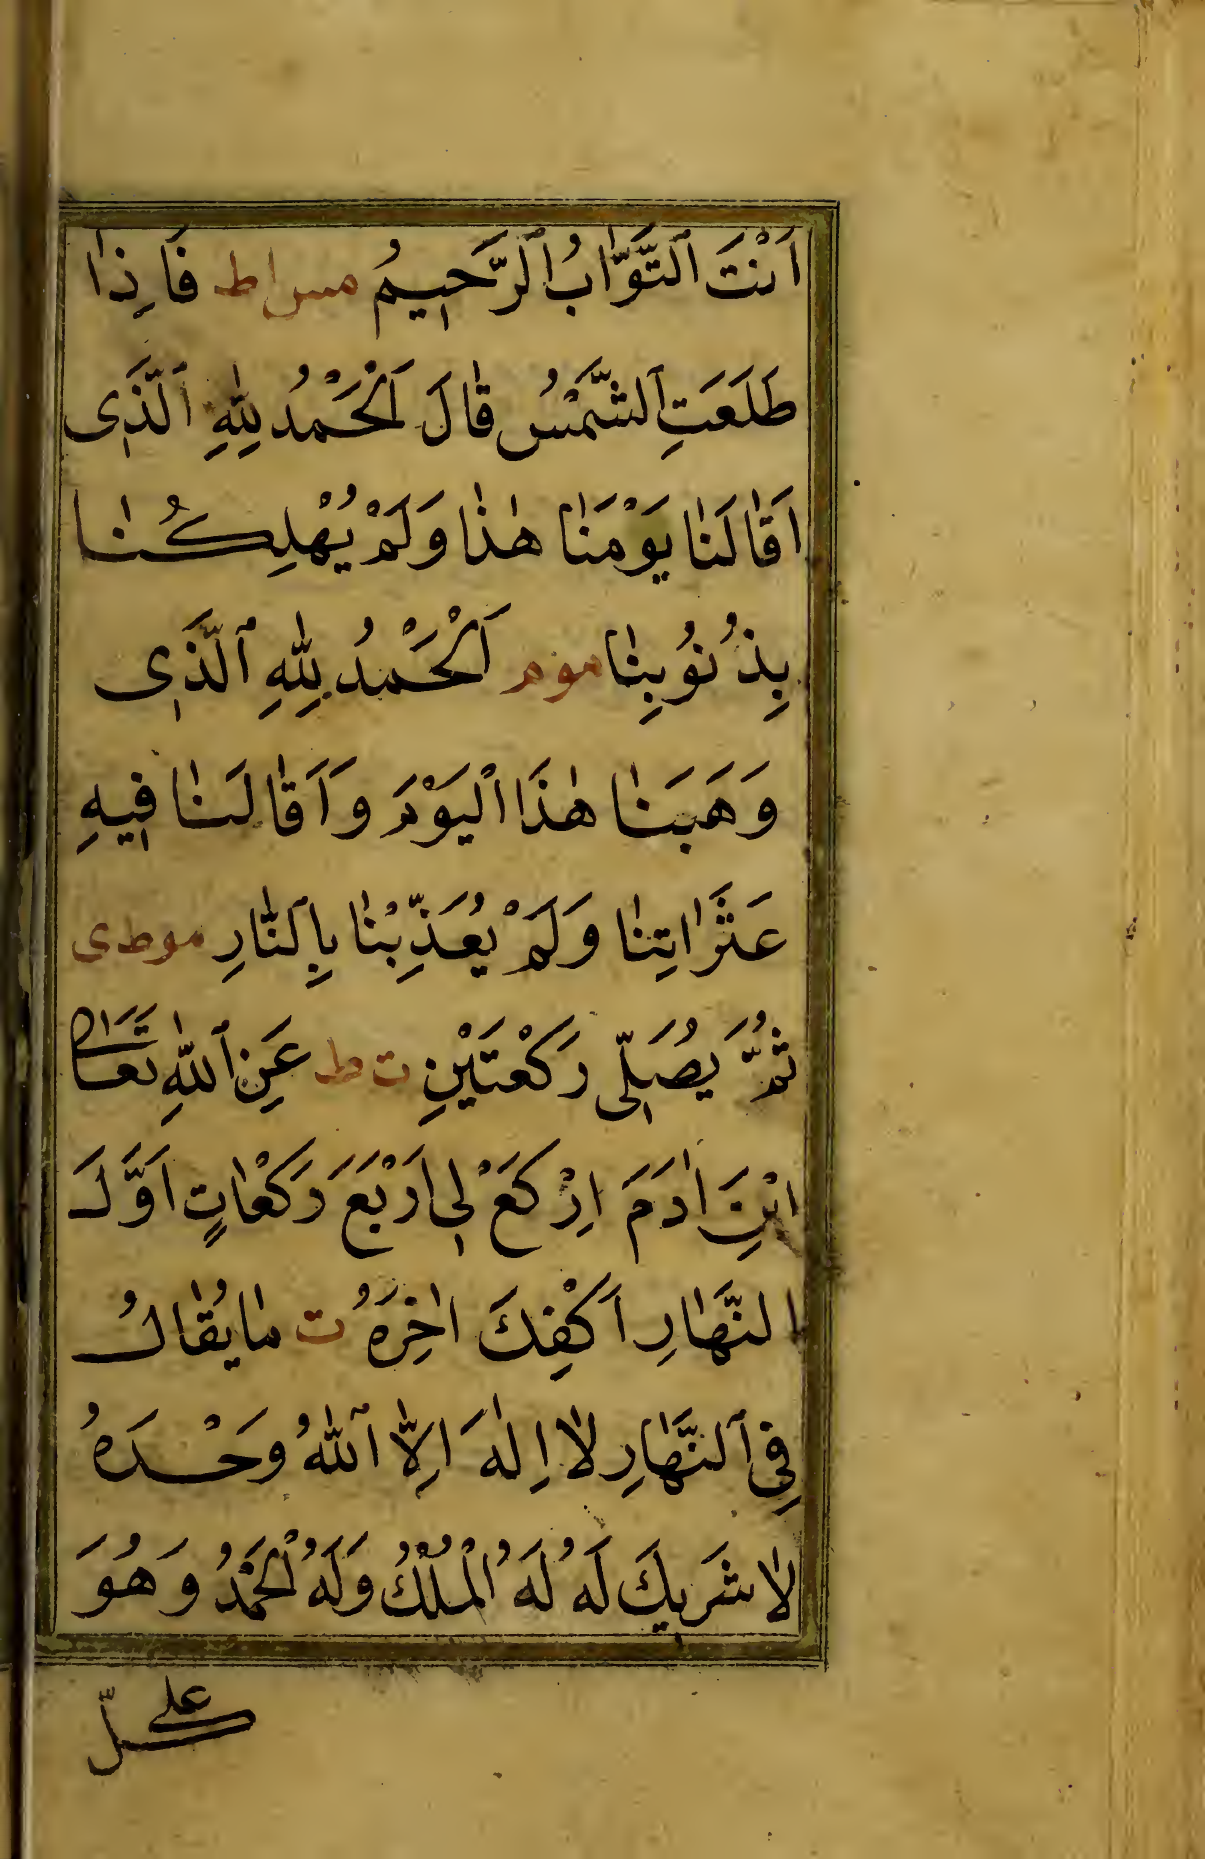 اَنْتَ ٱلتَّوَّابُ ٱلرَّحِيمُ مس اط فَاِذَا
طَلَعَتِ ٱلشَّمْسُ قَالَ اَلْحَمْدُ لِلّٰهِ ٱلَّذِى
اَقَالَنَا يَوْمَنَا هٰذَا وَلَمْ يُهْلِكْنَا
بِذُنُوبِنَا موم اَلْحَمْدُ لِلّٰهِ ٱلَّذِى
وَهَبَنَا هٰذَا الْيَوْمَ وَاَقَالَنَا فِيهِ
عَثَرَاتِنَا وَلَمْ يُعَذِّبْنَا بِٱلنَّارِ موطى
ثُمَّ يُصَلِّى رَكْعَتَيْنِ ت ط عَنِ ٱللّٰهِ تَعَالٰى
ابْنَ اٰدَمَ اِرْكَعْ لِى اَرْبَعَ رَكَعَاتٍ اَوَّلَ
النَّهَارِ اَكْفِكَ اٰخِرَهُ ت مَا يُقَالُ
فِى ٱلنَّهَارِ لَا اِلٰهَ اِلَّا ٱللّٰهُ وَحْدَهُ
لَا شَرِيكَ لَهُ لَهُ الْمُلْكُ وَلَهُ الْحَمْدُ وَهُوَ
على كلّ